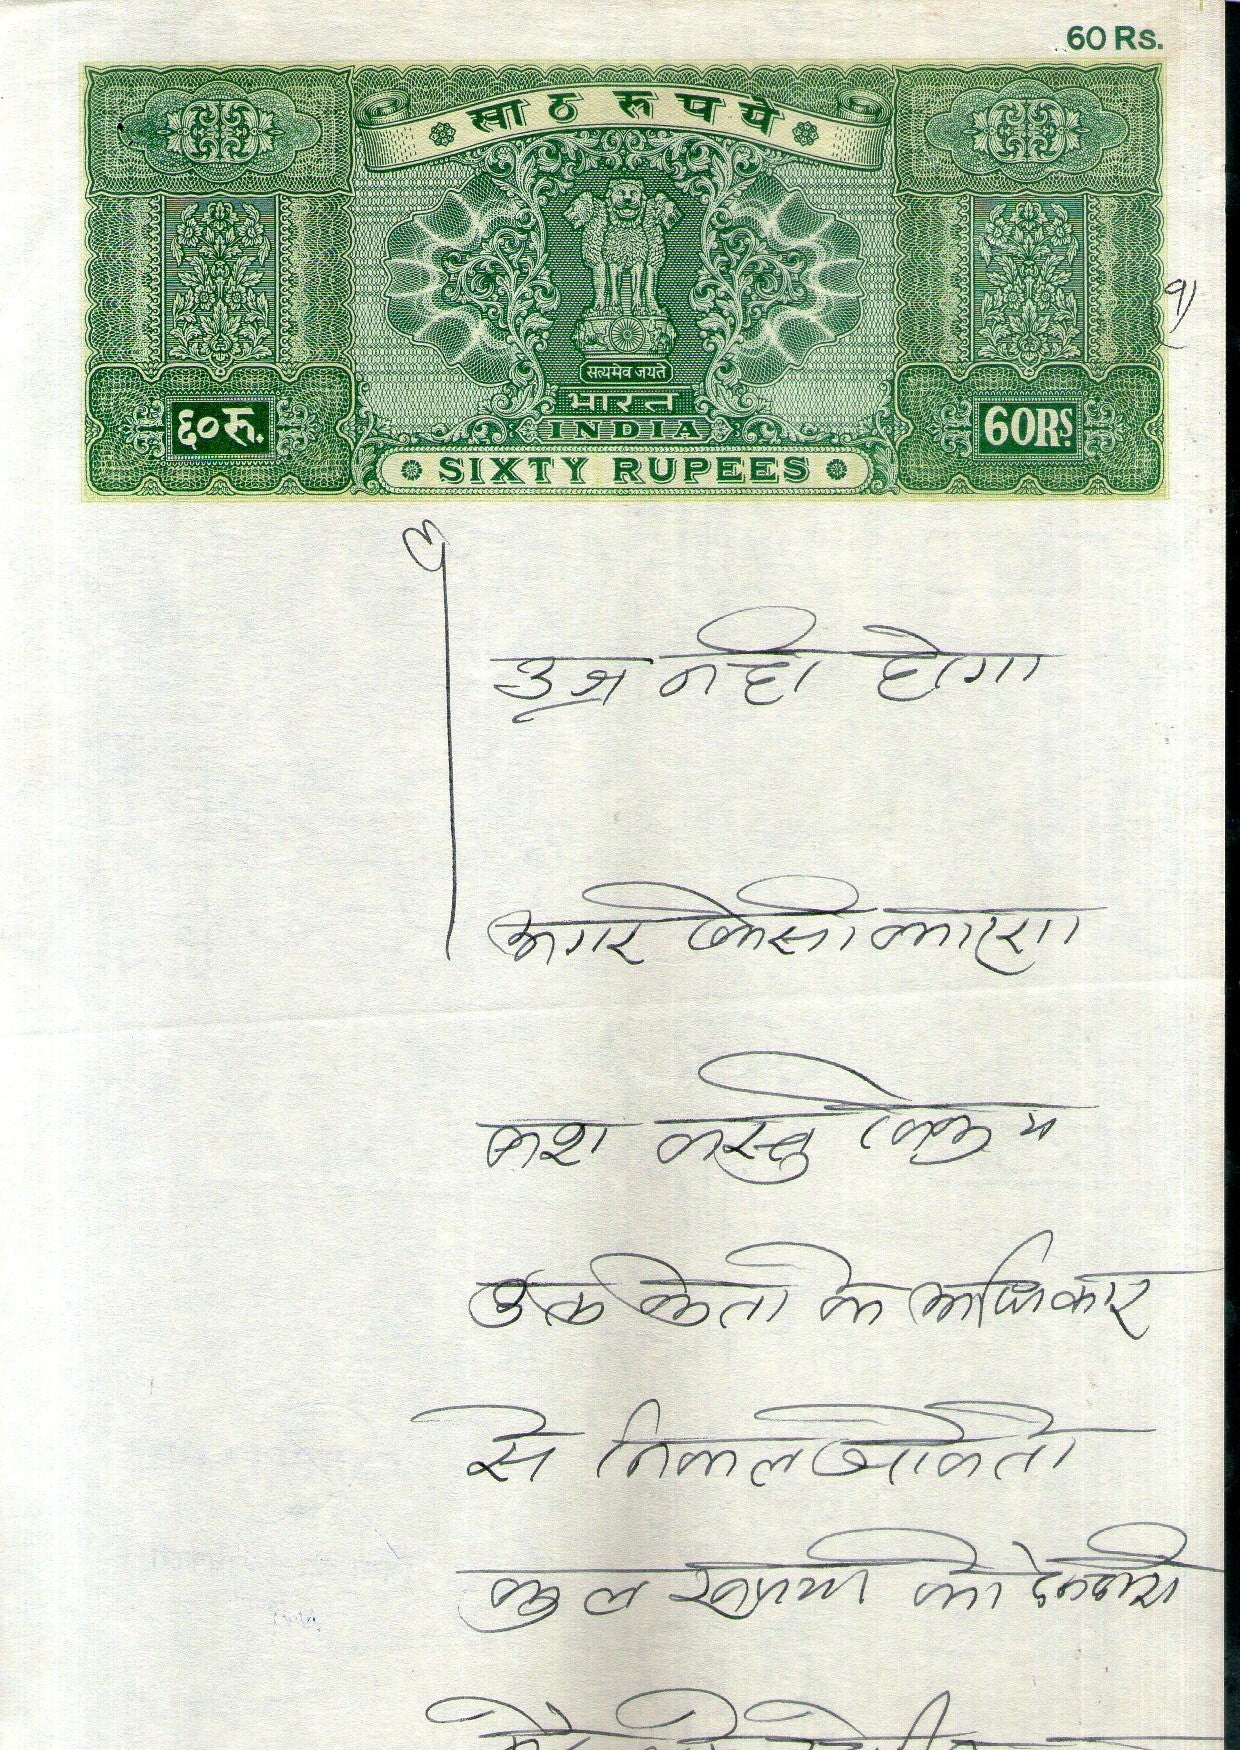 60 Rs.
साठ रूपये
सत्यमेव जयते
भारत
६०रू.
INDIA
60RS.
SIXTY RUPEES
उज्र नही होगा
अगर किसी कारण
वश वस्तु विक्रय
उक्त क्रेता के अधिकार
से निकल जावे तो
कुल रूपया की देनदारी